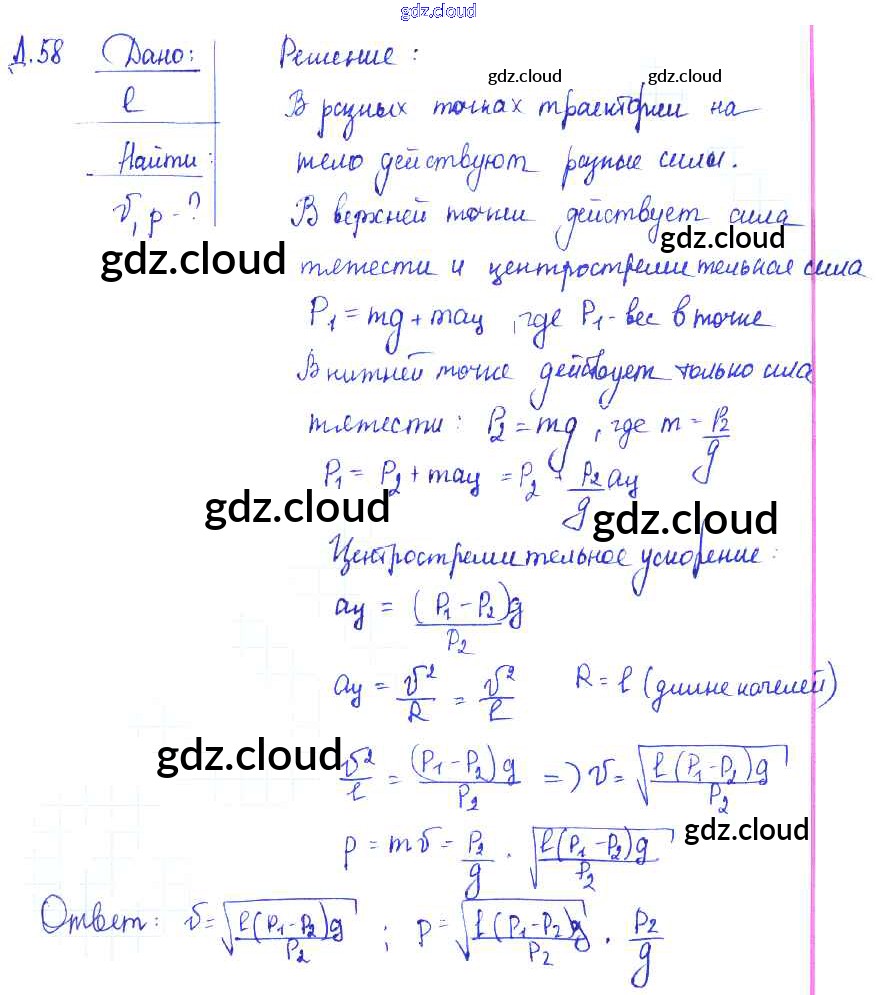 gdz.cloud
Д.58 Дано: Решение:
gdz.cloud gdz.cloud
ℓ В разных точках траектории на
Найти: тело действуют разные силы.
v, p - ? В верхней точки действует сила
gdz.cloud
gdz.cloud тяжести и центростремительная сила
P₁ = mg + maц, где P₁ - вес в точке
В нижней точке действует только сила
тяжести: P₂ = mg, где m = P₂/g
P₁ = P₂ + maц = P₂ + P₂/g aц
gdz.cloud gdz.cloud
Центростремительное ускорение:
aц = (P₁ - P₂)g/P₂
aц = v²/R = v²/ℓ R = ℓ (длине качелей)
gdz.cloud
v²/ℓ = (P₁ - P₂)g/P₂ => v = √(ℓ(P₁ - P₂)g/P₂)
gdz.cloud
p = mv = P₂/g · √(ℓ(P₁ - P₂)g/P₂)
Ответ: v = √(ℓ(P₁ - P₂)g/P₂) ; p = √(ℓ(P₁ - P₂)g/P₂) · P₂/g